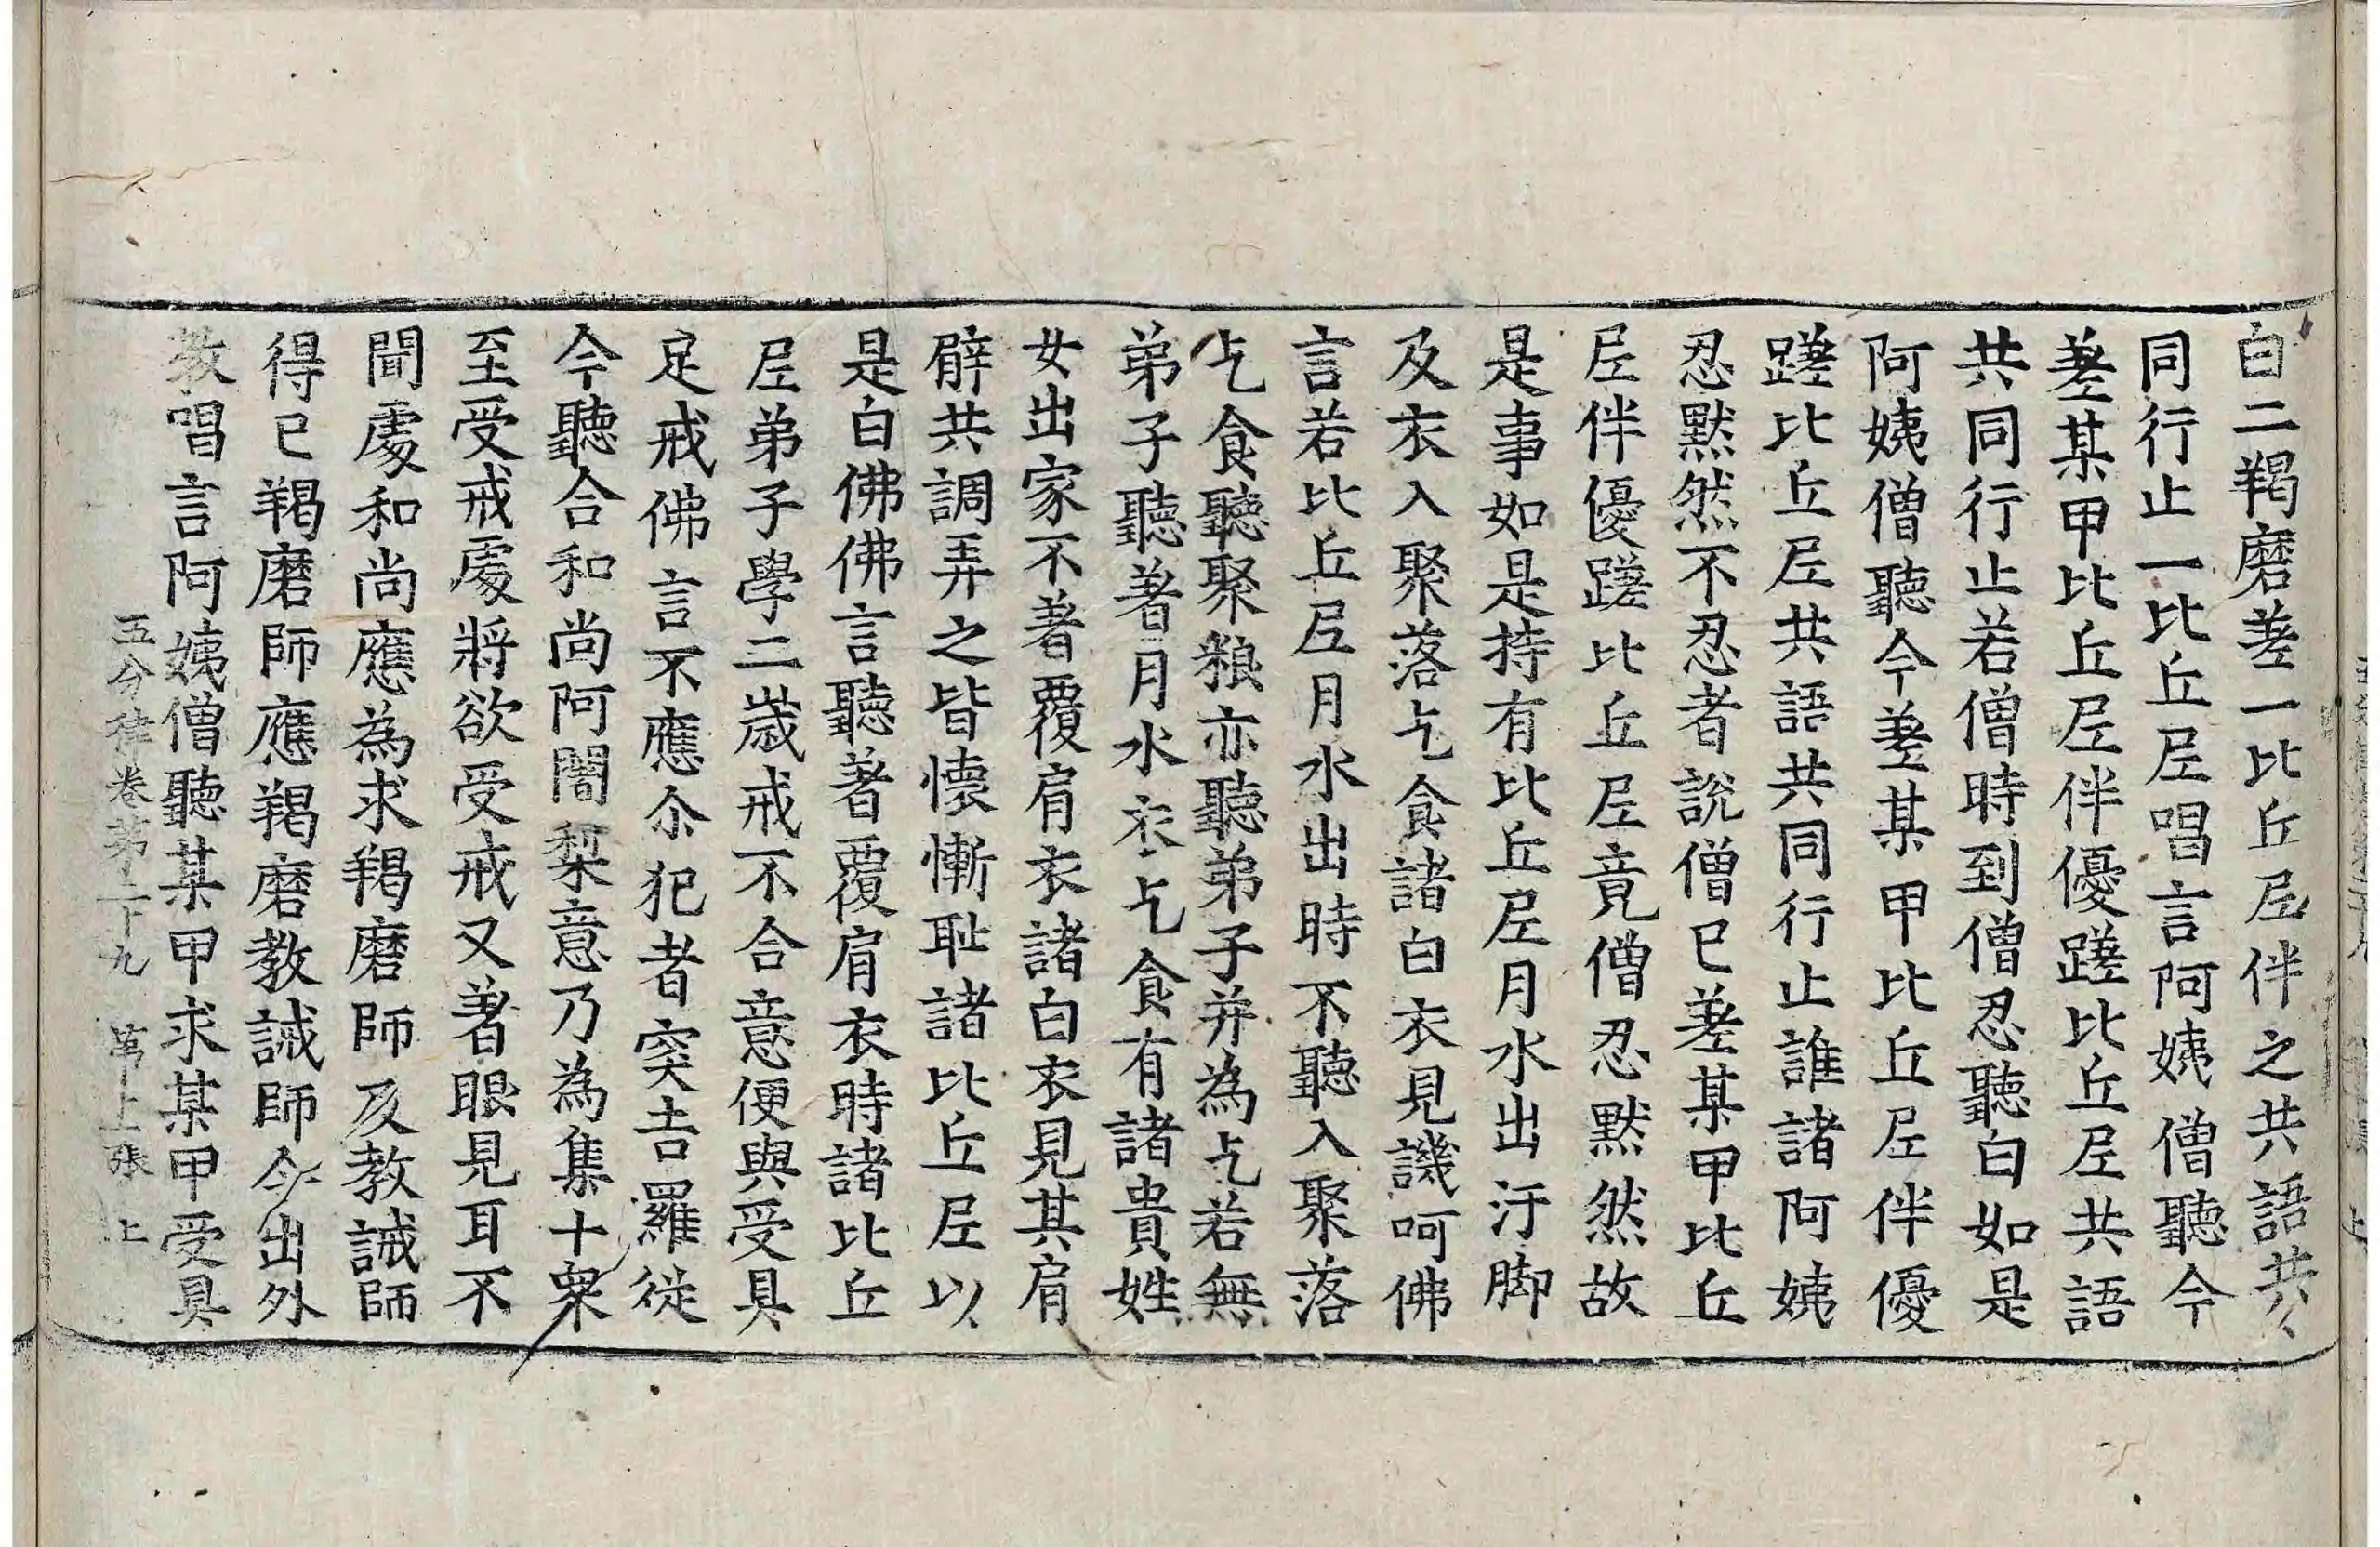 白二羯磨差一比丘尼伴之共語共
同行止一比丘尼唱言阿姨僧聽今
差某甲比丘尼伴優蹉比丘尼共語
共同行止若僧時到僧忍聽白如是
阿姨僧聽今差某甲比丘尼伴優
蹉比丘尼共語共同行止誰諸阿姨
忍黙然不忍者說僧已差某甲比丘
尼伴優蹉比丘尼竟僧忍黙然故
是事如是持有比丘尼月水出汙脚
及衣入聚落乞食諸白衣見譏呵佛
言若比丘尼月水出時不聽入聚落
乞食聽聚粮亦聽弟子并為乞若無
弟子聽著月水衣乞食有諸貴姓
女出家不著覆肩衣諸白衣見其肩
臂共調弄之皆懷慚耻諸比丘尼以
是白佛佛言聽著覆肩衣時諸比丘
尼弟子學二歲戒不合意便與受具
足戒佛言不應尒犯者突吉羅從
今聽合和尚阿闍梨意乃為集十衆
至受戒處將欲受戒又著眼見耳不
聞處和尚應為求羯磨師及教誡師
得已羯磨師應羯磨教誡師今出外
教唱言阿姨僧聽某甲求某甲受具
五分律卷第二十九 第上張 上